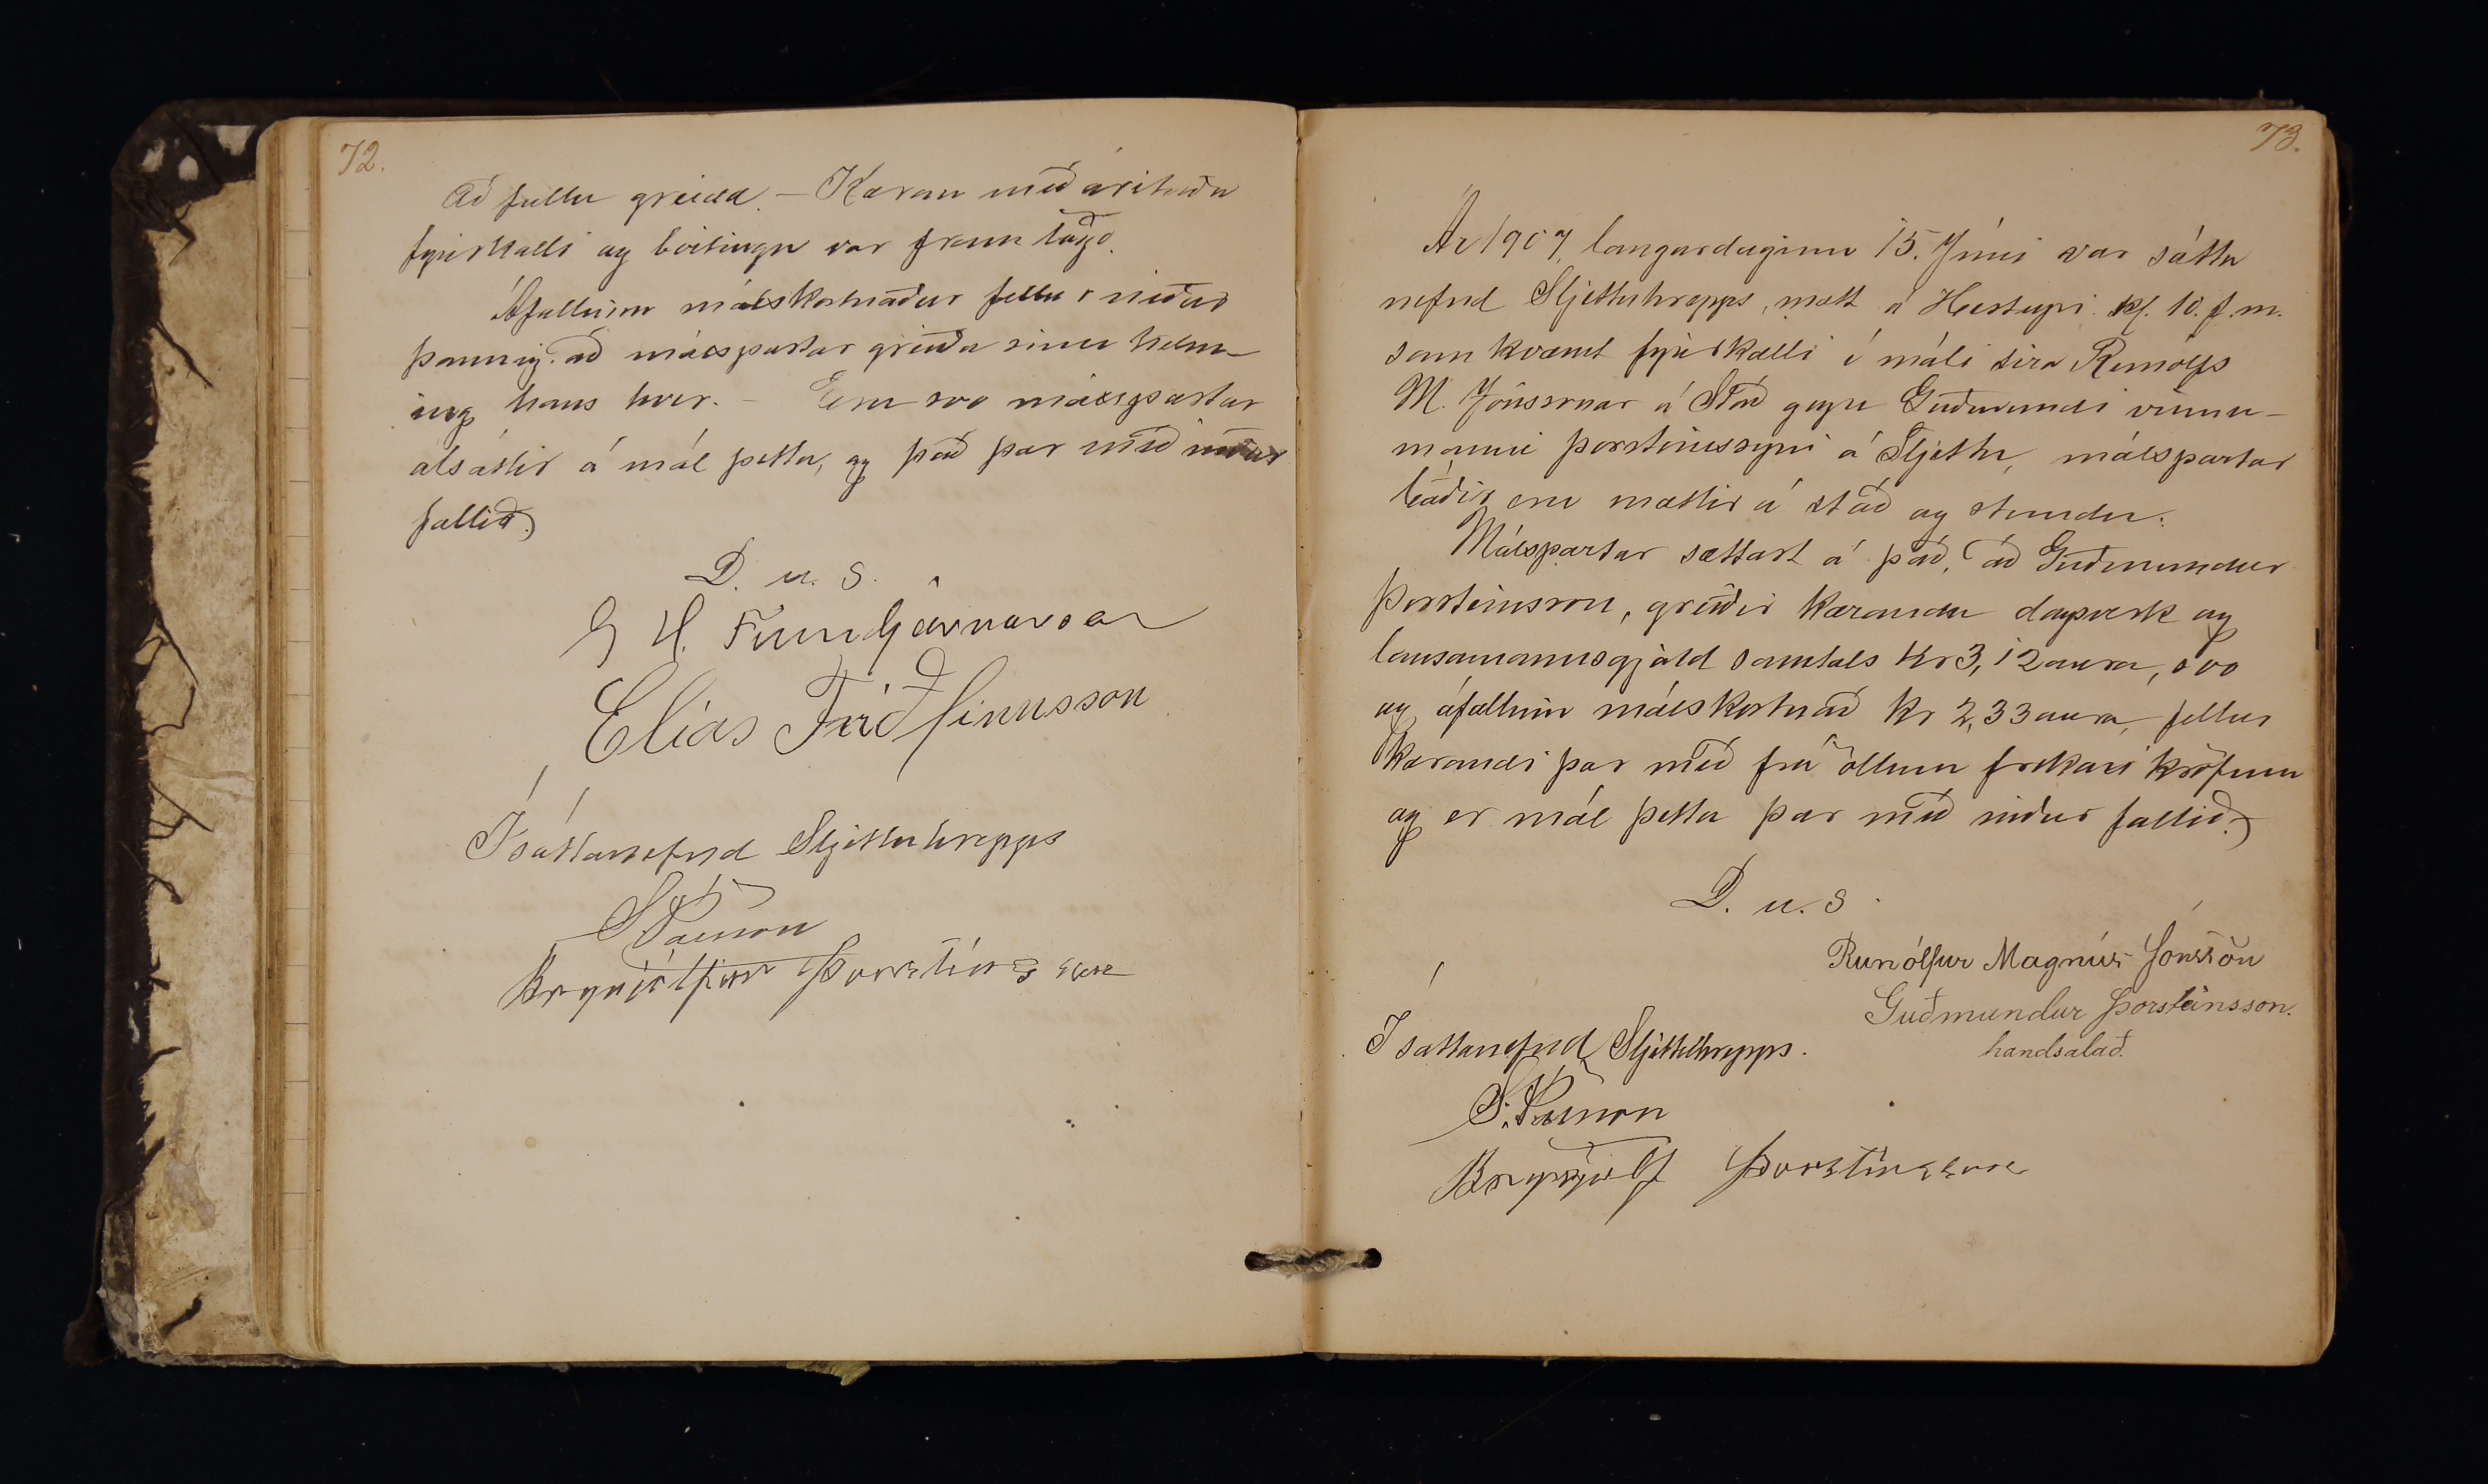 72.
að fullu greidd. – Kæran með árituðu
fyrirkalli og birtingu var framlögð.
Áfallinn málskostnaður fellur niður
þannig að málspartar greiða sinn helm-
ing hans hver. – Eru svo málspartar
alsáttir á mál þetta, og það þar með niður
fallið.
D. u. S.
G H. Finnbjörnsson
Elías Friðfinnsson
Í sáttanefnd Sljettuhrepps
S Pálsson
Brynjólfur Þorsteinsson
73.
Ár 1907, laugardaginn 15. Júní var sátta
nefnd Sljettuhrepps, mætt á Hesteyri kl. 10. f.m.
samkvæmt fyrirkalli í máli síra Runólfs
M. Jónssonar á Stað gegn Guðmundi vinnu-
manni Þorsteinssyni á Sljettu, málspartar
báðir eru mættir á stað og stundu.
Málspartar sættast á það, að Guðmundur
Þorsteinsson, greiðir kæranda dagsverk og
lausamannsgjald samtals kr 3,12 aura, svo
og áfallinn málskostnað kr 2,33 aura, fellur
kærandi þar með frá öllum frekari kröfum
og er mál þetta þar með niður fallið.
D. u. S.
Runólfur Magnús Jónsson
Guðmundur Þorsteinsson.
handsalað.
Í sáttanefnd Sljettuhrepps.
S. Pálsson
Brynjólf Þorsteinsson